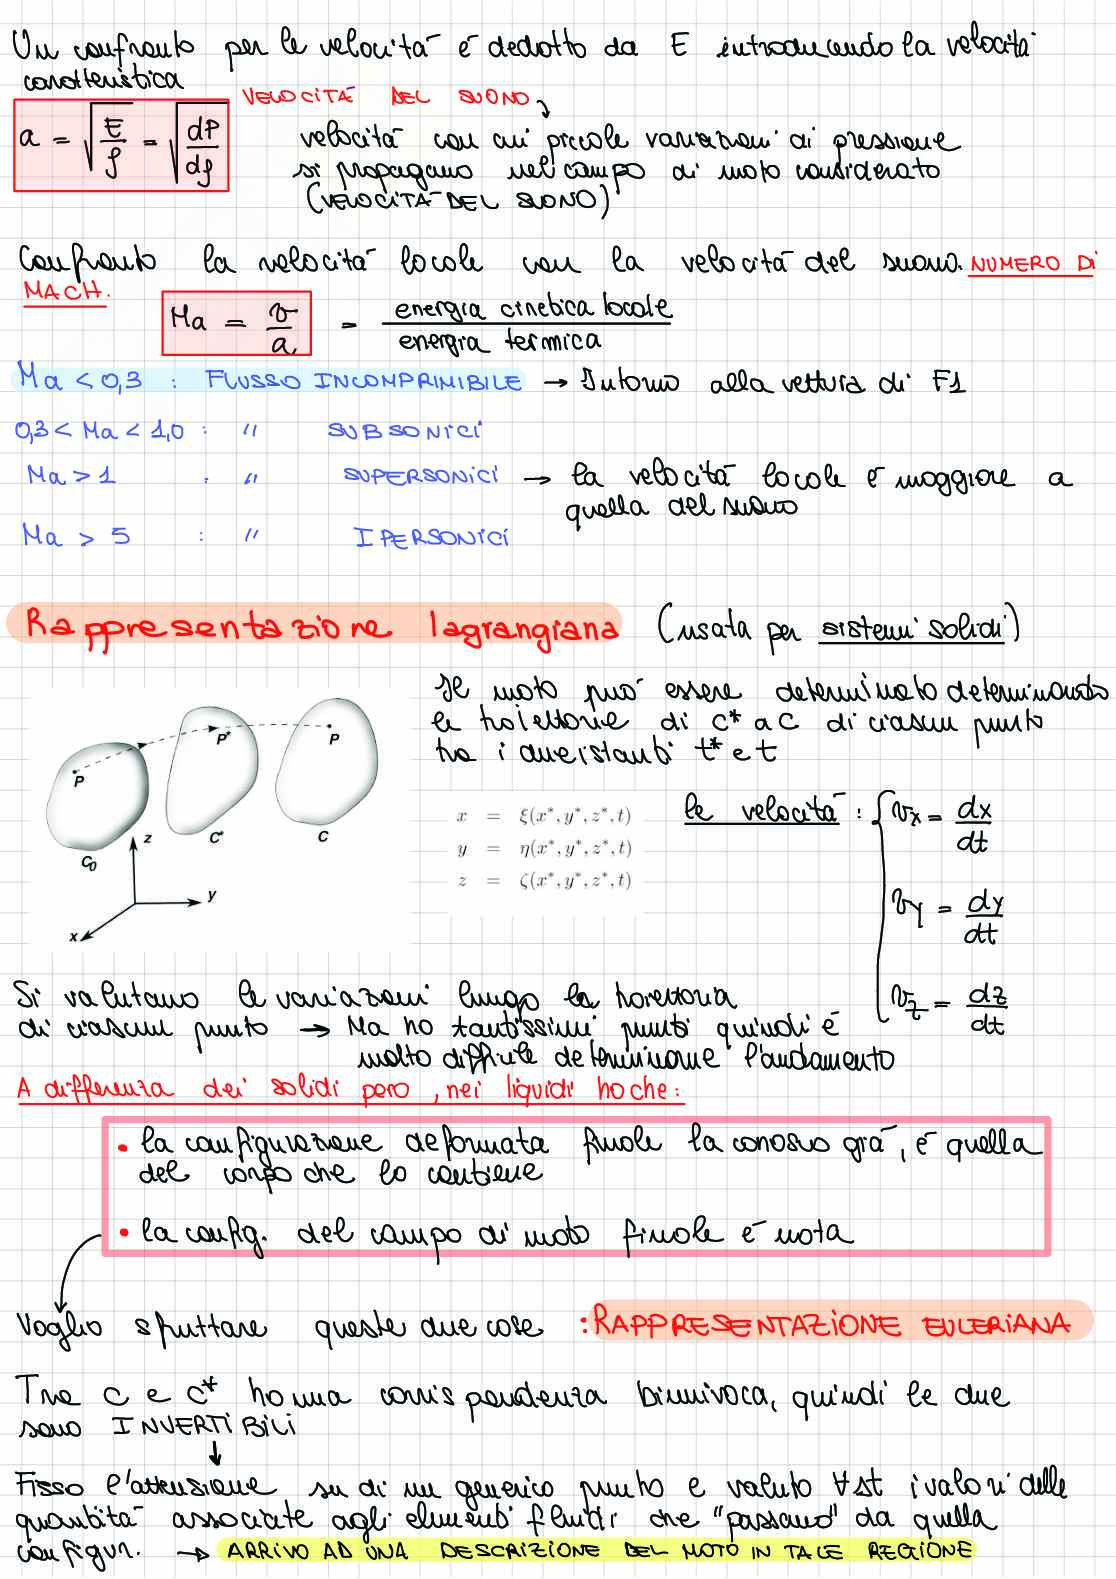 Un confronto per le velocità è dedotto da E introducendo la velocità
caratteristica
VELOCITÀ DEL SUONO
a = √(E/ρ) = √(dP/dρ)
velocità con cui piccole variazioni di pressione
si propagano nel campo di moto considerato
(VELOCITÀ DEL SUONO)
Confronto la velocità locale con la velocità del suono. NUMERO DI
MACH.
Ma = v/a = energia cinetica locale / energia termica
Ma < 0,3 : FLUSSO INCOMPRIMIBILE → Intorno alla vettura di F1
0,3 < Ma < 1,0 : " SUBSONICI
Ma > 1 : " SUPERSONICI → la velocità locale è maggiore a
quella del suono
Ma > 5 : " IPERSONICI
Rappresentazione lagrangiana (usata per sistemi solidi)
Il moto può essere determinato determinando
le traiettorie di C* a C di ciascun punto
tra i due istanti t* e t
P
P*
P
C₀
C*
C
z
y
x
x = ξ(x*, y*, z*, t)
y = η(x*, y*, z*, t)
z = ζ(x*, y*, z*, t)
le velocità :
vx = dx/dt
vy = dy/dt
vz = dz/dt
Si valutano le variazioni lungo la traiettoria
di ciascun punto → Ma ho tantissimi punti quindi è
molto difficile determinarne l'andamento
A differenza dei solidi però, nei liquidi ho che:
• la configurazione deformata finale la conosco già, è quella
del corpo che lo contiene
• la config. del campo di moto finale è nota
Voglio sfruttare queste due cose : RAPPRESENTAZIONE EULERIANA
Tra C e C* ho una corrispondenza biunivoca, quindi le due
sono INVERTIBILI
↓
Fisso l'attenzione su di un generico punto e valuto ∀st i valori delle
quantità associate agli elementi fluidi che "passano" da quella
configur. → ARRIVO AD UNA DESCRIZIONE DEL MOTO IN TALE REGIONE